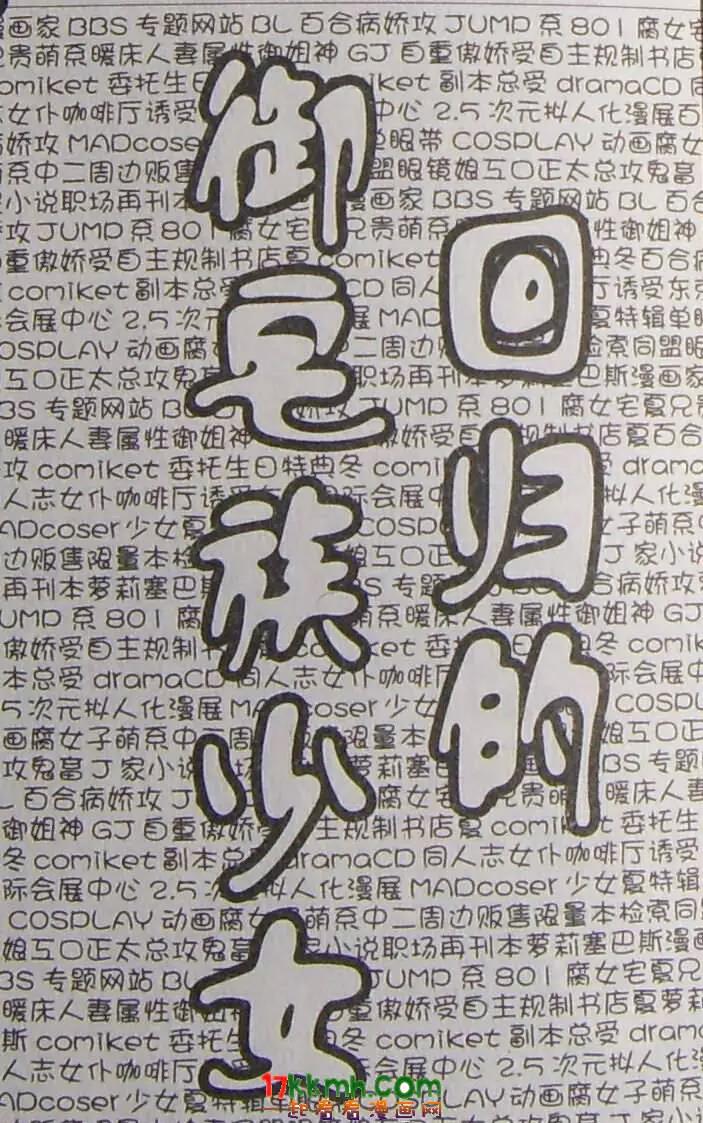 回归的
御宅族少女
画家 BBS 专题网站 BL 百合病娇攻 JUMP 系 801 腐女宅
贵萌系暖床人妻属性御姐神 GJ 自重傲娇受自主规制书店
comiket 委托生日 comiket 副本总受 dramaCD 同
女仆咖啡厅诱受 中心 2.5 次元拟人化漫展百
娇攻 MADcoser 眼带 COSPLAY 动画腐女
系中二周边贩售 盟眼镜娘互口正太总攻鬼畜
小说职场再刊本 画家 BBS 专题网站 BL 百合
攻 JUMP 系 801 腐女宅 兄贵萌系 性御姐神
重傲娇受自主规制书店夏 comiket 典冬百合病
comiket 副本总受 CD 同人 厅诱受东京
会展中心 2.5 次元 展 MAD 夏特辑单眼
OSPLAY 动画腐女 中二周边 检索同盟眼
互口正太总攻鬼畜 职场再刊本 塞巴斯漫画家
BS 专题网站 BL 娇攻 JUMP 系 801 腐女宅夏兄
暖床人妻属性御姐神 自主规制书店夏百合
攻 comiket 委托生日特典冬 comiket 受 drama
人志女仆咖啡厅诱受 际会展中 拟人化漫
ADcoser 少女夏 COSP 女子萌系中
边贩售限量本检 娘互口正 J 家小说
再刊本萝莉塞巴斯 BS 专题 百合病娇攻
UMP 系 801 腐 萌系暖床人妻属性御姐神 GJ
傲娇受自主规制书 comiket 委托 日 冬 comik
本总受 dramaCD 同人志女仆咖啡厅 会展中
5 次元拟人化漫展 MADcoser 少女 COSPL
画腐女子萌系中二周 贩售限量本 娘互口正
攻鬼畜 J 家小说 场再刊本萝莉塞巴斯 BS 专题
L 百合病娇攻 J 腐女宅 贵萌 暖床人妻
御姐神 GJ 自重傲娇受 主规制书店夏 comiket 委托生
冬 comiket 副本总受 dramaCD 同人志女仆咖啡厅诱受
际会展中心 2.5 次元拟人化漫展 MADcoser 少女夏特辑
COSPLAY 动画腐女 萌系中二周边贩售限量本检索同
娘互口正太总攻鬼畜 家小说职场再刊本萝莉塞巴斯漫画
BS 专题网站 BL JUMP 系 801 腐女宅夏兄
暖床人妻属性御姐神 自重傲娇受自主规制书店夏萝莉
斯 comiket 委托生 冬 comiket 副本总受 drama
人志女仆咖啡厅诱受 会展中心 2.5 次元拟人化漫
ADcoser 少女夏特辑单 COSPLAY 动画腐女子萌系
17kkmh.com
一起看看漫画网